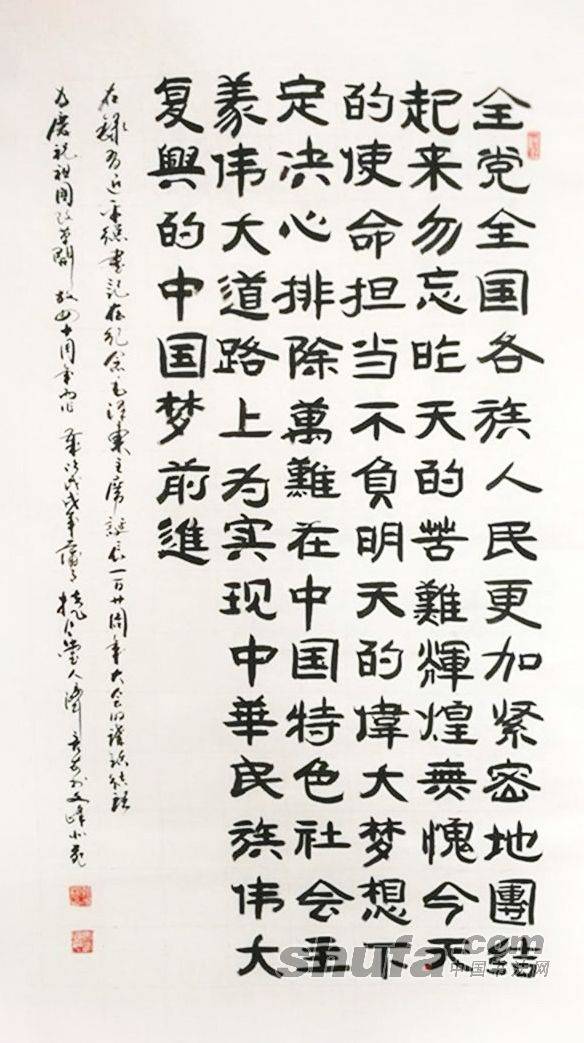 全党全国各族人民更加紧密地團结
起来勿忘昨天的苦難輝煌無愧今天
的使命担当不負明天的偉大梦想下
定决心排除萬難在中国特色社会主
義伟大道路上为实现中華民族伟大
复興的中国梦前進
右録习近平總書記在纪念毛泽東主席誕辰一百廿周年大会的講話結語
为慶祝祖国改革開放四十周年而作 歲次戊戌年
shufa.com
中国书法网